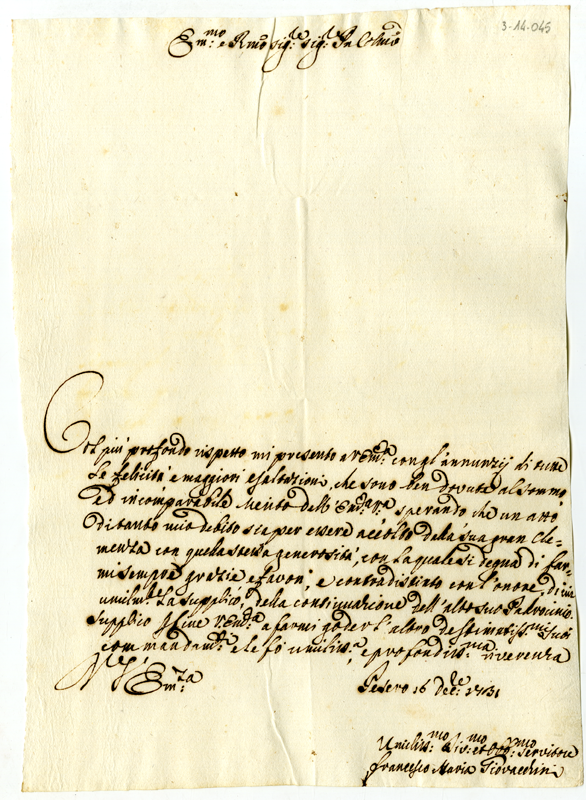 3-14-045
Em:mo e Rmo Sig:re Sig:re Pn Colmo
Col più profondo rispetto mi presento a V.Em:za con gl'annunzij di tutte
le felicità e maggiori esaltazioni, che sono ben dovute al sommo,
ed incomparabile Merito dell' Em:za V:ra sperando che un atto
di tanto mio debito sia per essere accolto dalla sua gran Cle-
menza con quella stessa generosità, con la quale si degna di far-
mi sempre grazie e favori; e contradistinto con l'onore, di
umilm:te La supplico della continuazione dell'alto suo Padrocinio.
Supplico in fine V.Em:za a farmi goder l'altro de stimatiss:mi suoi
commandam:ti e le fò umiliss:a e profondiss:ma riverenza
Em:za
Pesero 16 Dec:re 1731
Umiliss:mo Div:mo et Obb:mo Servitore
Francesco Maria Giovacchini